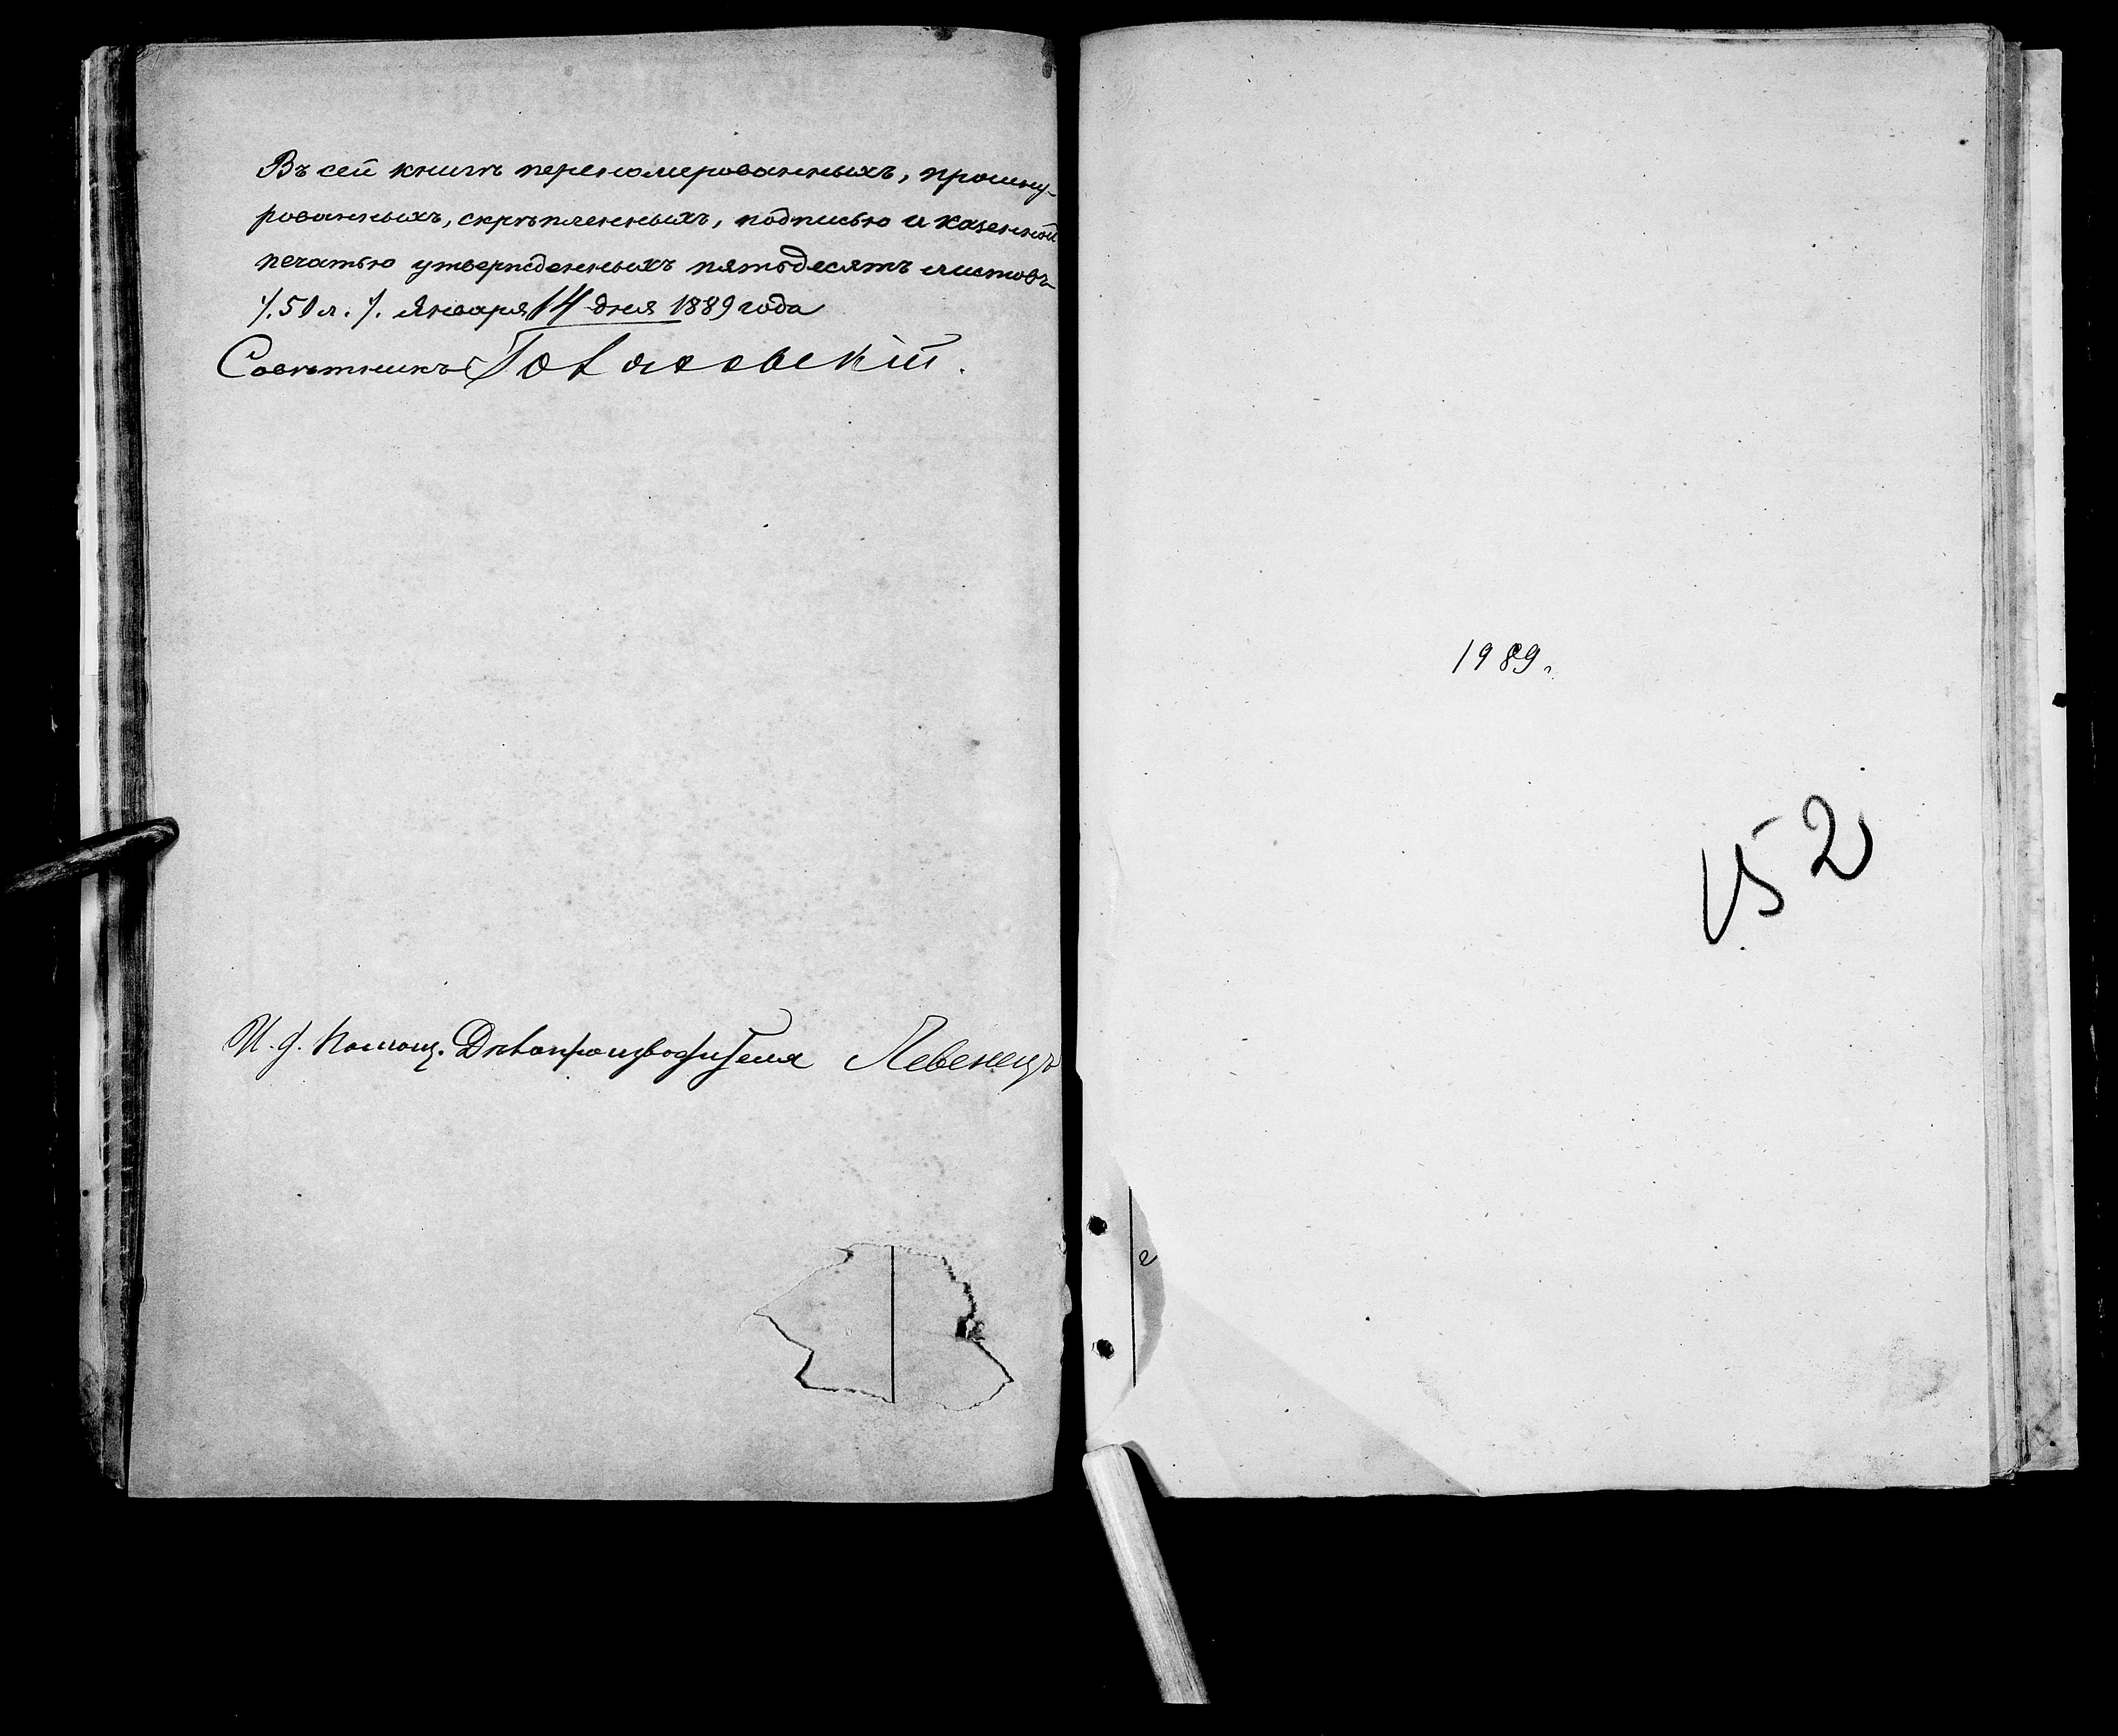 Въ сей книгѣ переномерованныхъ, прошну-
рованныхъ, скрѣпленныхъ, подписью и казенной
печатью утвержденныхъ пятьдесятъ листовъ
/.50 л./. Января 14 дня 1889 года
Совѣтникъ
И. д. Помощ. Дѣлопроизводителя Левенецъ
1989.
152